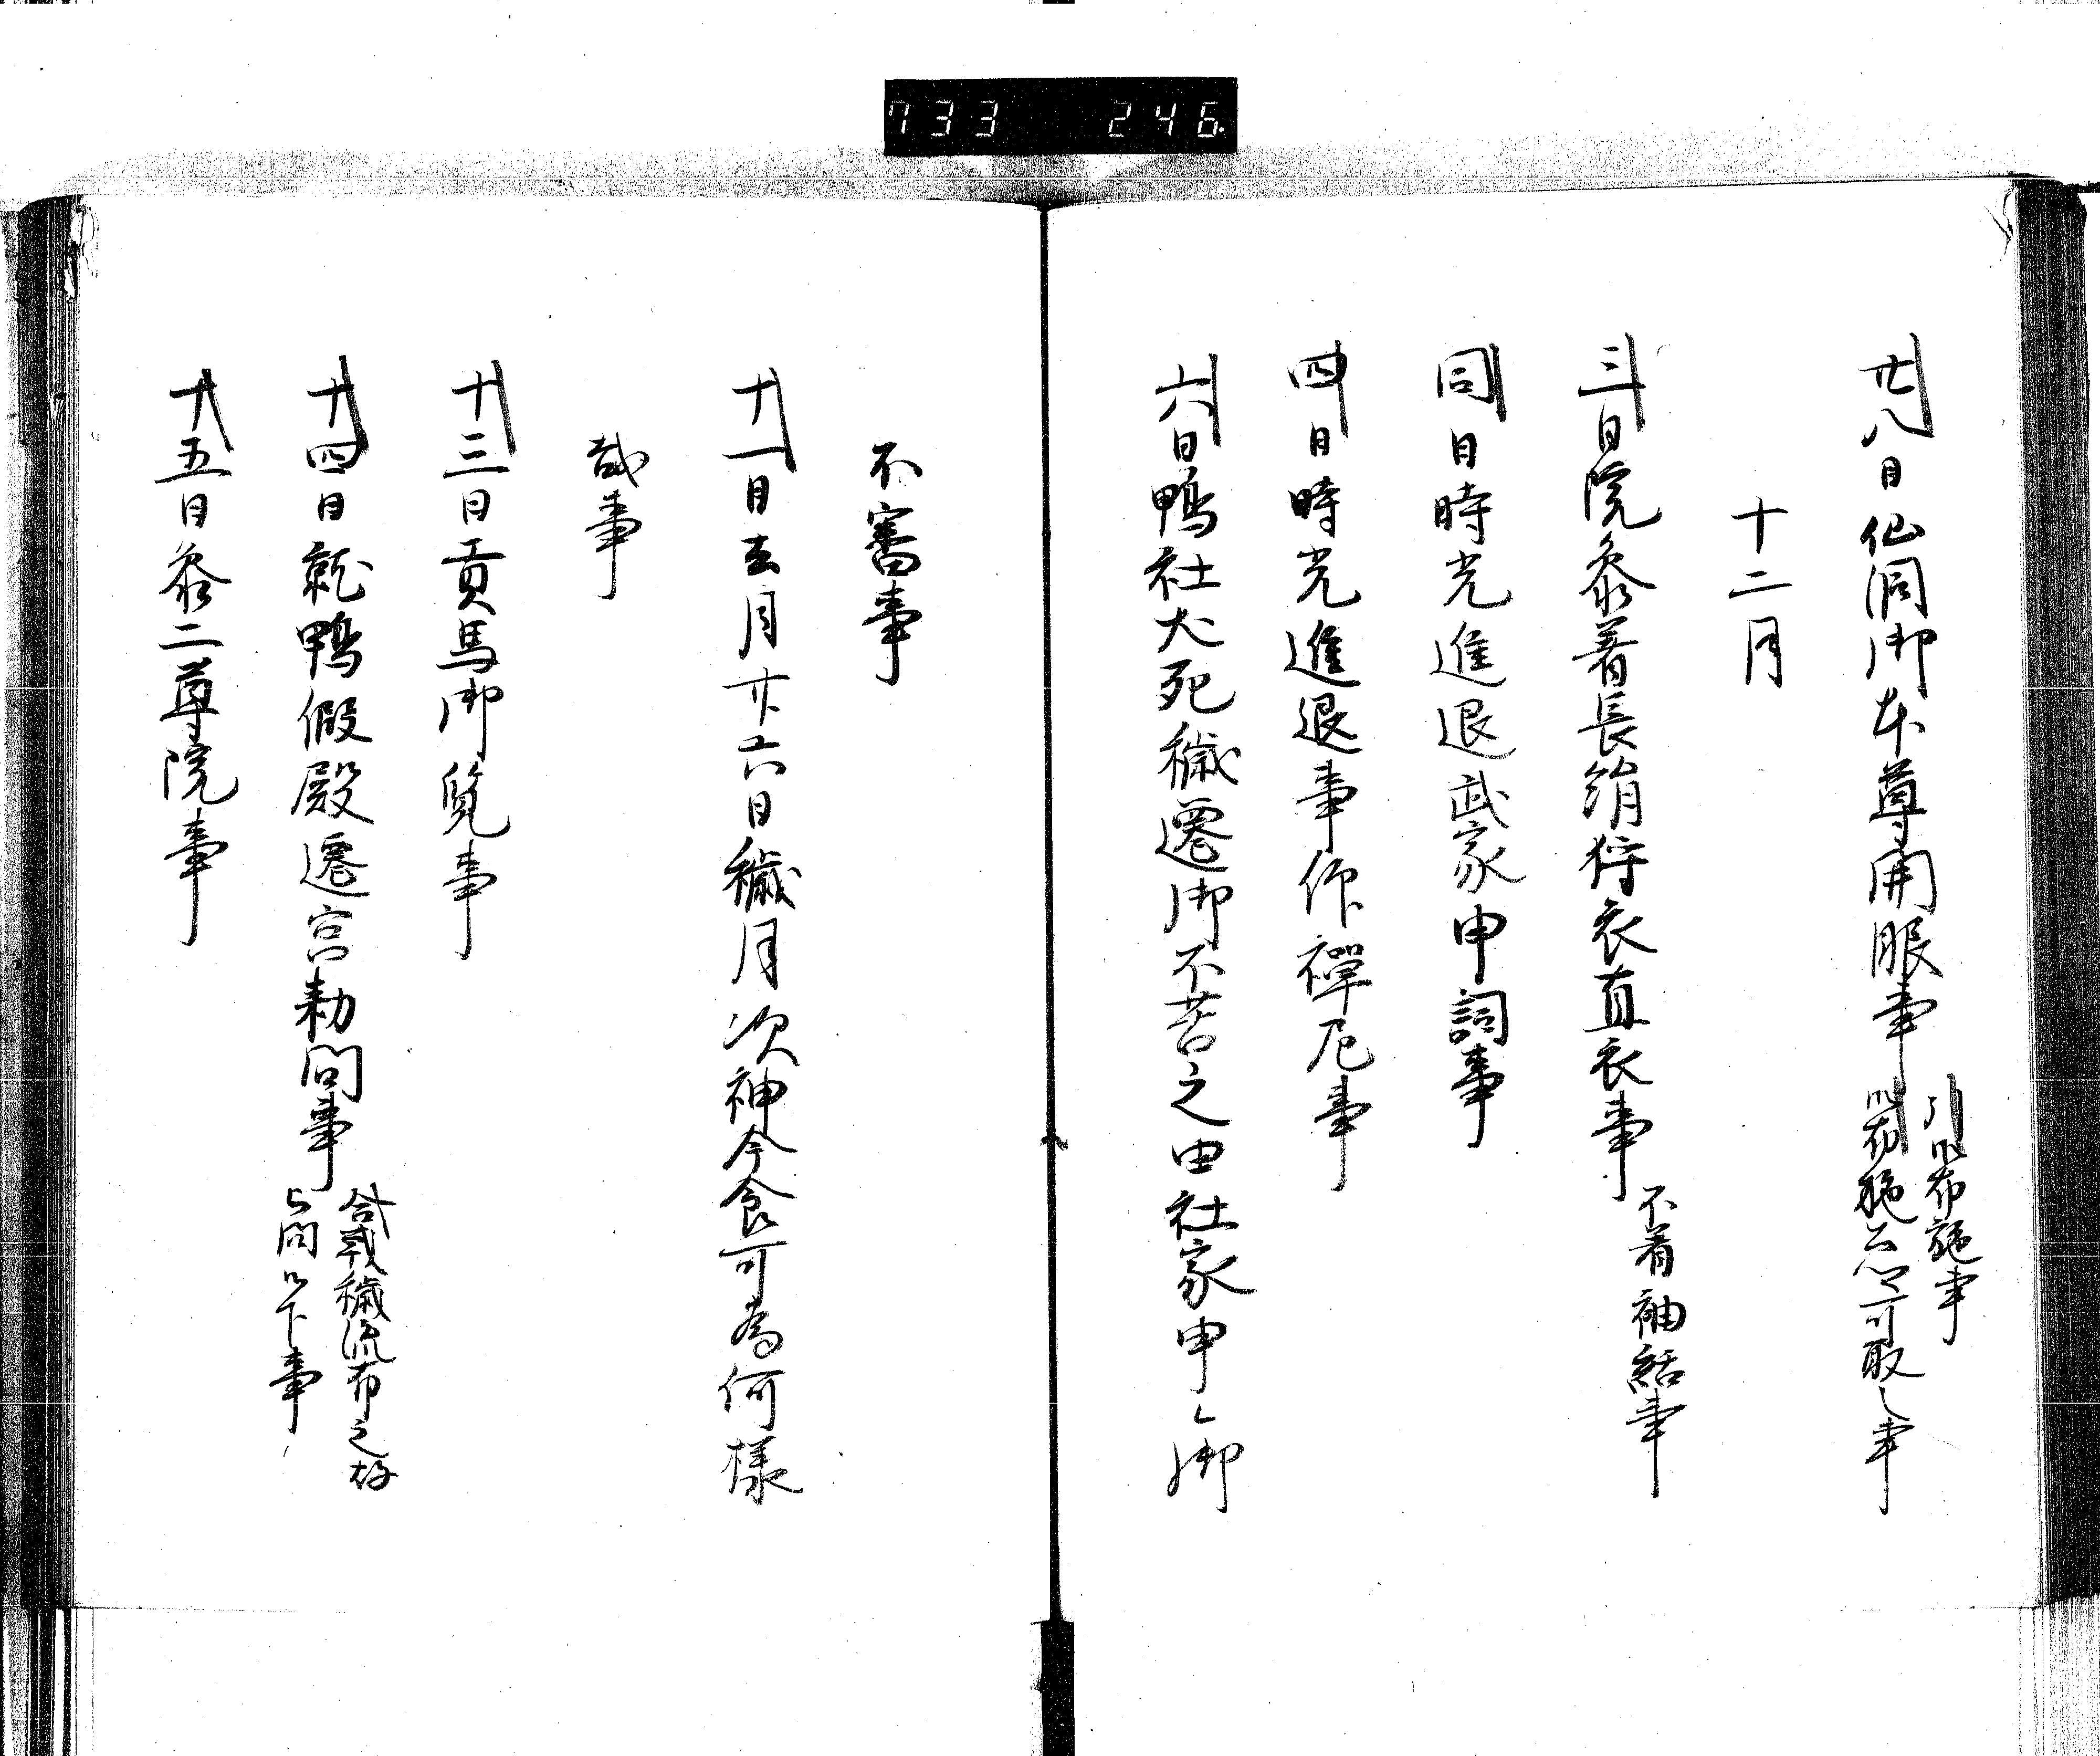 733 246
廿八日仙洞御本尊開眼事
引御布施事
御布施公卿可取之事
十二月
三日院参着長絹狩衣直衣事
不着袖結事
同日時光進退武家申詞事
四日時光進退事仰禅尼事
六日鴨社犬死穢遷御不苦之由社家申之御
不審事
十一日去月廿六日穢月次神今食可為何様
哉事
十三日貢馬御覧事
十四日就鴨仮殿遷宮勅問事
合戦穢流布之好
占問以下事
十五日参二尊院事